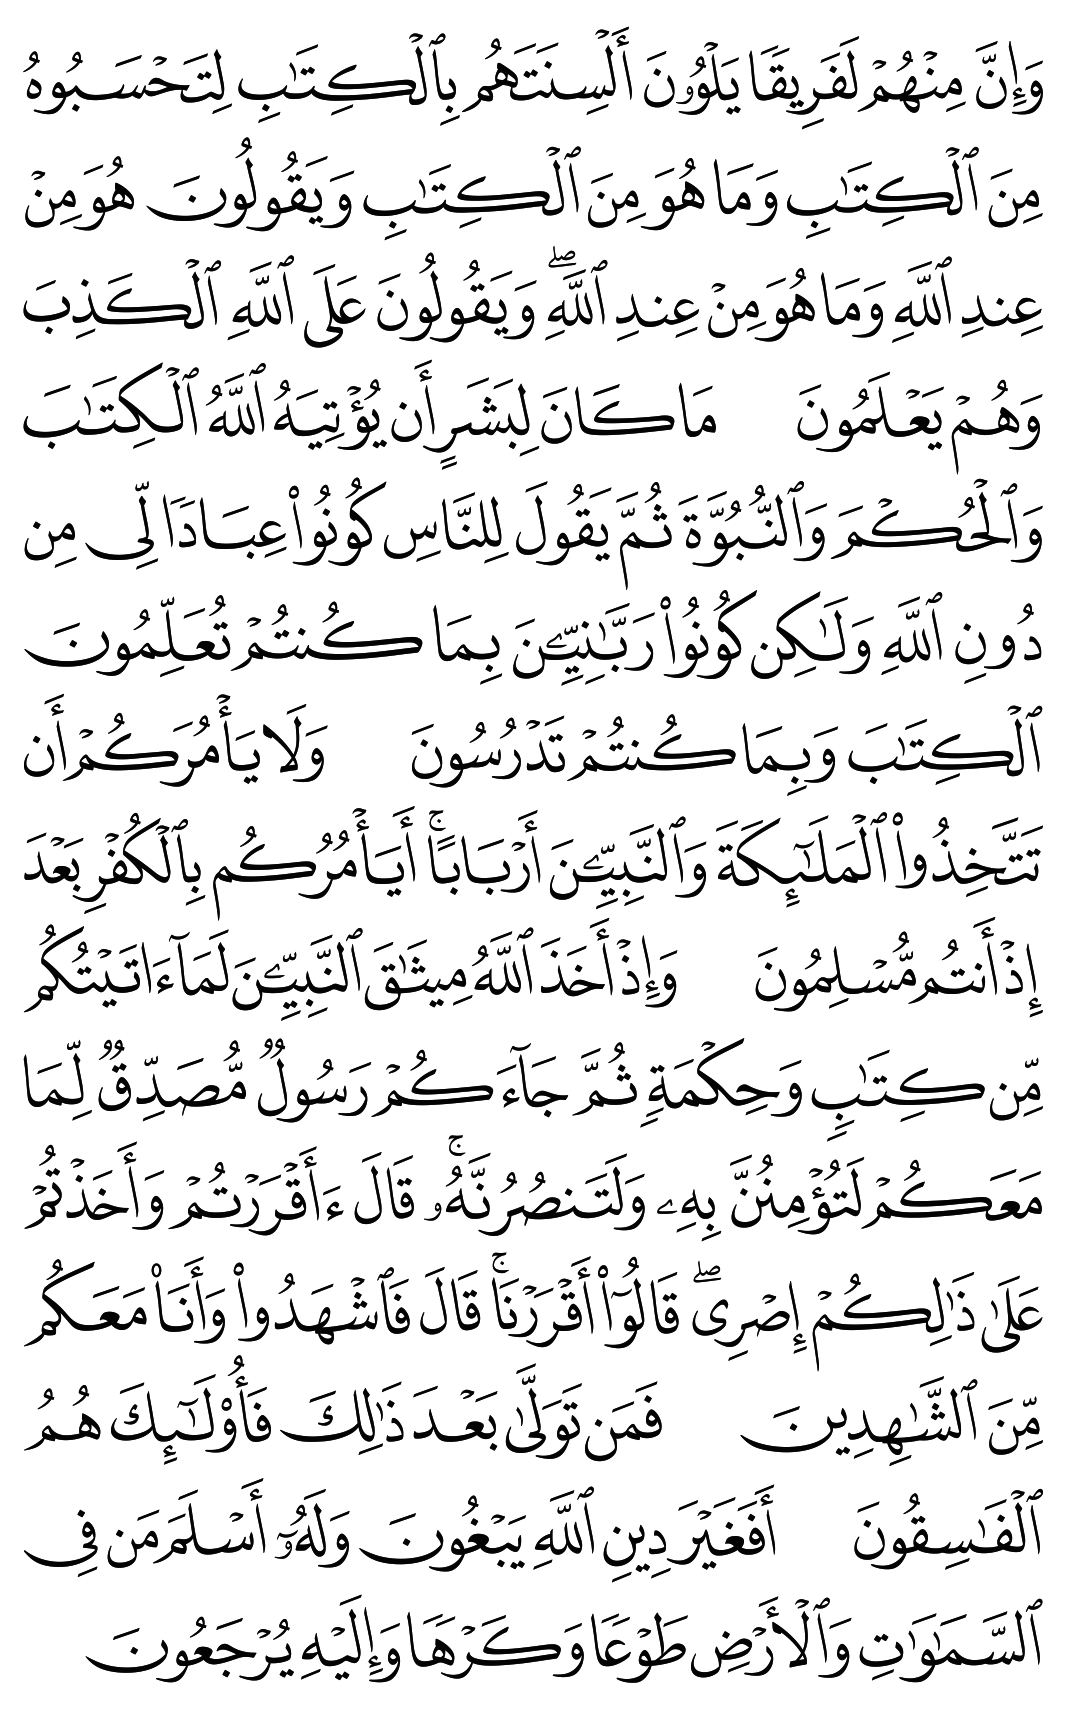 وَإِنَّ مِنۡهُمۡ لَفَرِيقٗا يَلۡوُۥنَ أَلۡسِنَتَهُم بِٱلۡكِتَٰبِ لِتَحۡسَبُوهُ
مِنَ ٱلۡكِتَٰبِ وَمَا هُوَ مِنَ ٱلۡكِتَٰبِ وَيَقُولُونَ هُوَ مِنۡ
عِندِ ٱللَّهِ وَمَا هُوَ مِنۡ عِندِ ٱللَّهِۖ وَيَقُولُونَ عَلَى ٱللَّهِ ٱلۡكَذِبَ
وَهُمۡ يَعۡلَمُونَ مَا كَانَ لِبَشَرٍ أَن يُؤۡتِيَهُ ٱللَّهُ ٱلۡكِتَٰبَ
وَٱلۡحُكۡمَ وَٱلنُّبُوَّةَ ثُمَّ يَقُولَ لِلنَّاسِ كُونُواْ عِبَادٗا لِّي مِن
دُونِ ٱللَّهِ وَلَٰكِن كُونُواْ رَبَّٰنِيِّـۧنَ بِمَا كُنتُمۡ تُعَلِّمُونَ
ٱلۡكِتَٰبَ وَبِمَا كُنتُمۡ تَدۡرُسُونَ وَلَا يَأۡمُرَكُمۡ أَن
تَتَّخِذُواْ ٱلۡمَلَٰٓئِكَةَ وَٱلنَّبِيِّـۧنَ أَرۡبَابًاۚ أَيَأۡمُرُكُم بِٱلۡكُفۡرِ بَعۡدَ
إِذۡ أَنتُم مُّسۡلِمُونَ وَإِذۡ أَخَذَ ٱللَّهُ مِيثَٰقَ ٱلنَّبِيِّـۧنَ لَمَآ ءَاتَيۡتُكُم
مِّن كِتَٰبٖ وَحِكۡمَةٖ ثُمَّ جَآءَكُمۡ رَسُولٞ مُّصَدِّقٞ لِّمَا
مَعَكُمۡ لَتُؤۡمِنُنَّ بِهِۦ وَلَتَنصُرُنَّهُۥۚ قَالَ ءَأَقۡرَرۡتُمۡ وَأَخَذۡتُمۡ
عَلَىٰ ذَٰلِكُمۡ إِصۡرِيۖ قَالُوٓاْ أَقۡرَرۡنَاۚ قَالَ فَٱشۡهَدُواْ وَأَنَا۠ مَعَكُم
مِّنَ ٱلشَّٰهِدِينَ فَمَن تَوَلَّىٰ بَعۡدَ ذَٰلِكَ فَأُوْلَٰٓئِكَ هُمُ
ٱلۡفَٰسِقُونَ أَفَغَيۡرَ دِينِ ٱللَّهِ يَبۡغُونَ وَلَهُۥٓ أَسۡلَمَ مَن فِي
ٱلسَّمَٰوَٰتِ وَٱلۡأَرۡضِ طَوۡعٗا وَكَرۡهٗا وَإِلَيۡهِ يُرۡجَعُونَ